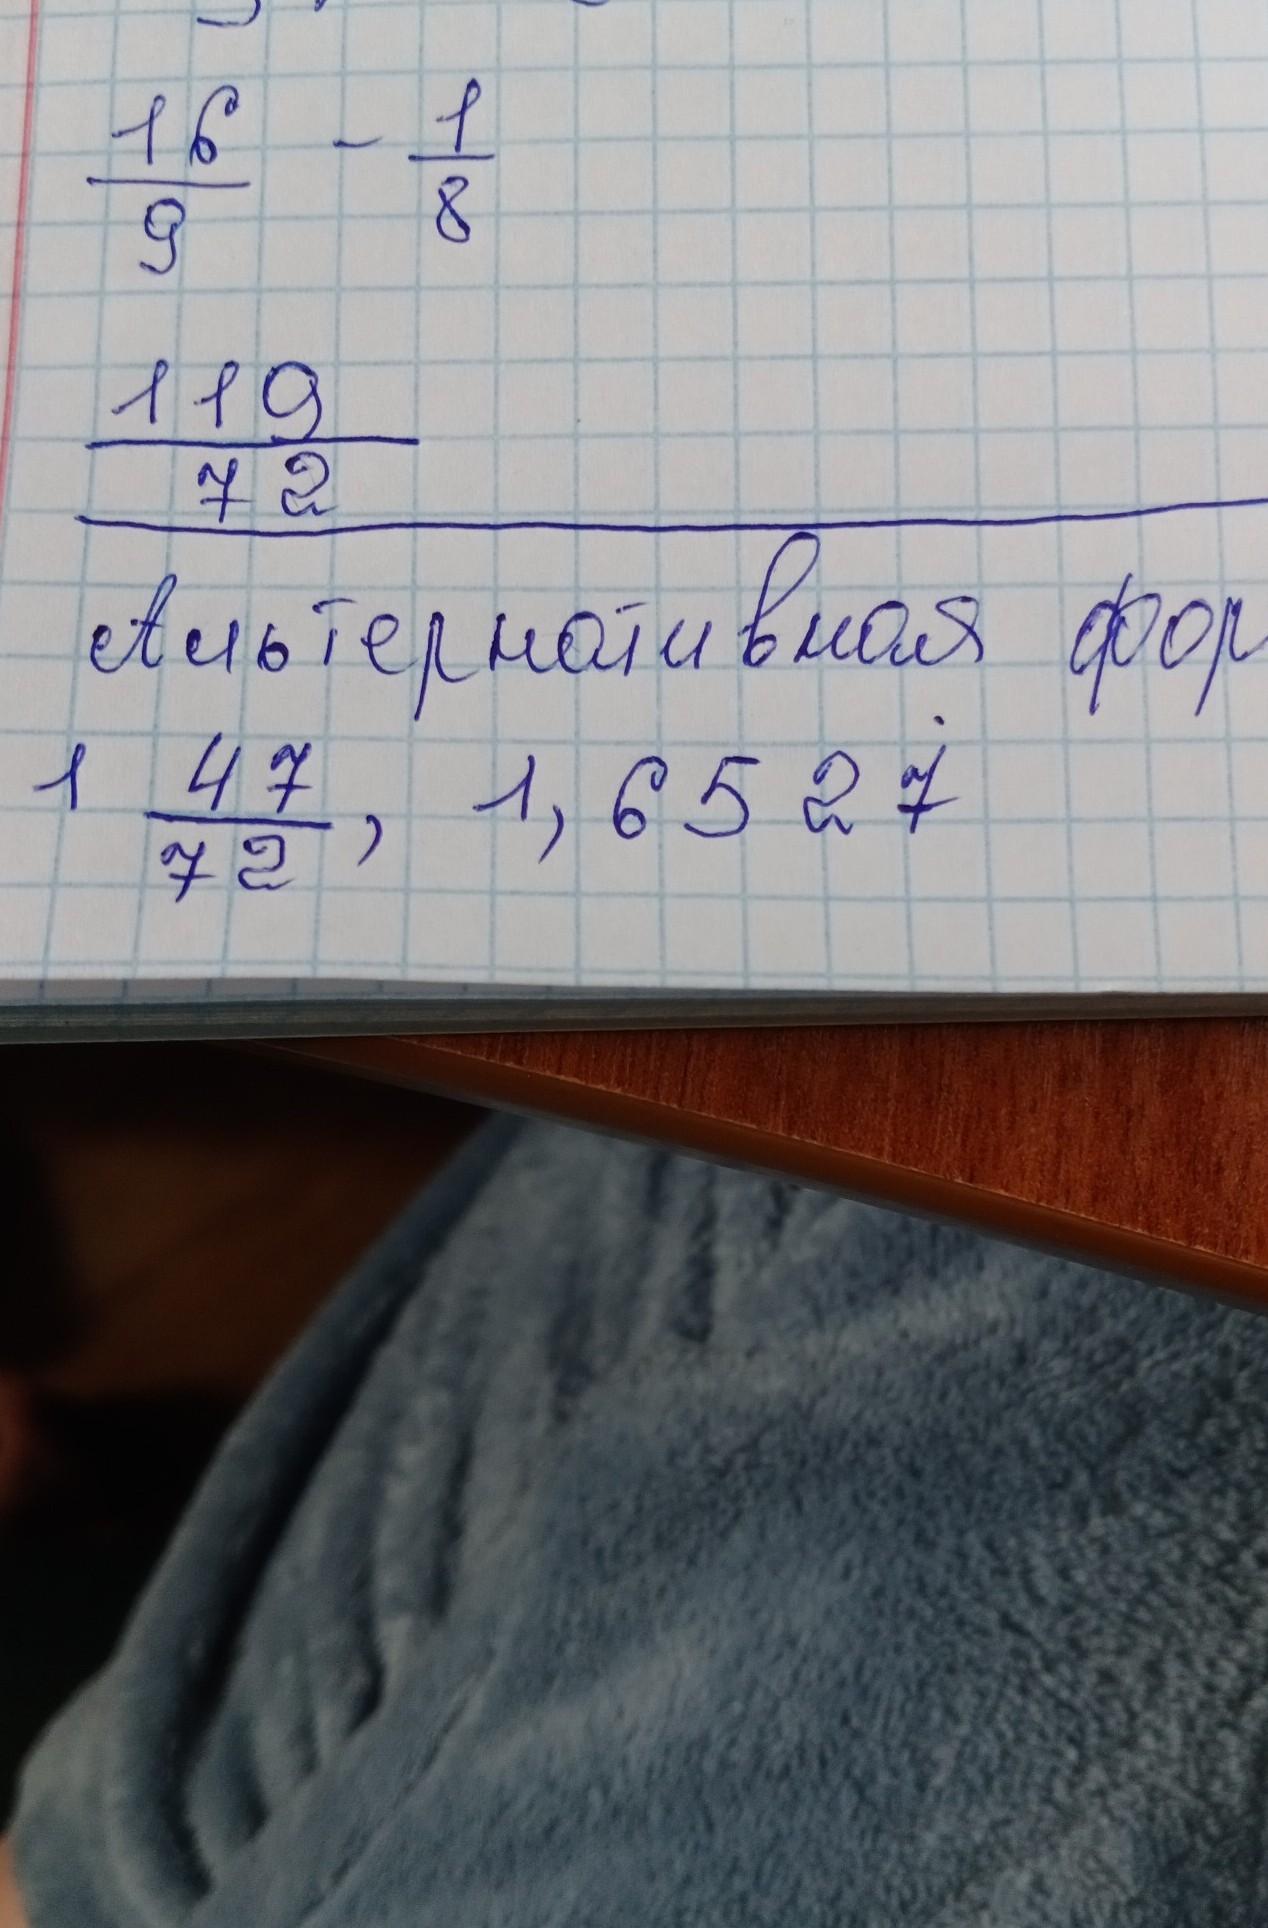 16/9 - 1/8
119/72
Альтернативная фор
1 47/72, 1,6527̇